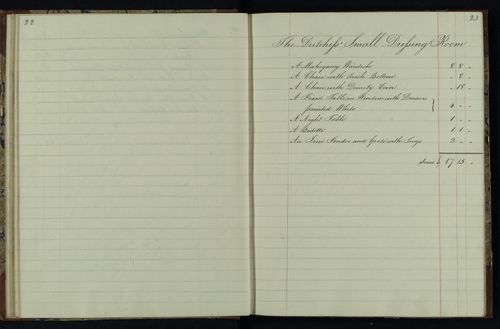 22
23
The Dutchess' Small Dressing Room
A Mahogany Wardrobe 8 8 -
A Chair with Bottom - 8 -
A Chair with Dimity Cover - 18 -
A Fixed Table in Window with Drawers
painted White } 4 - -
A Night Table 1 - -
A Bidette 1 1 -
An Iron Fender and Grate with Tongs 2 - -
Summ £ 17 15 -